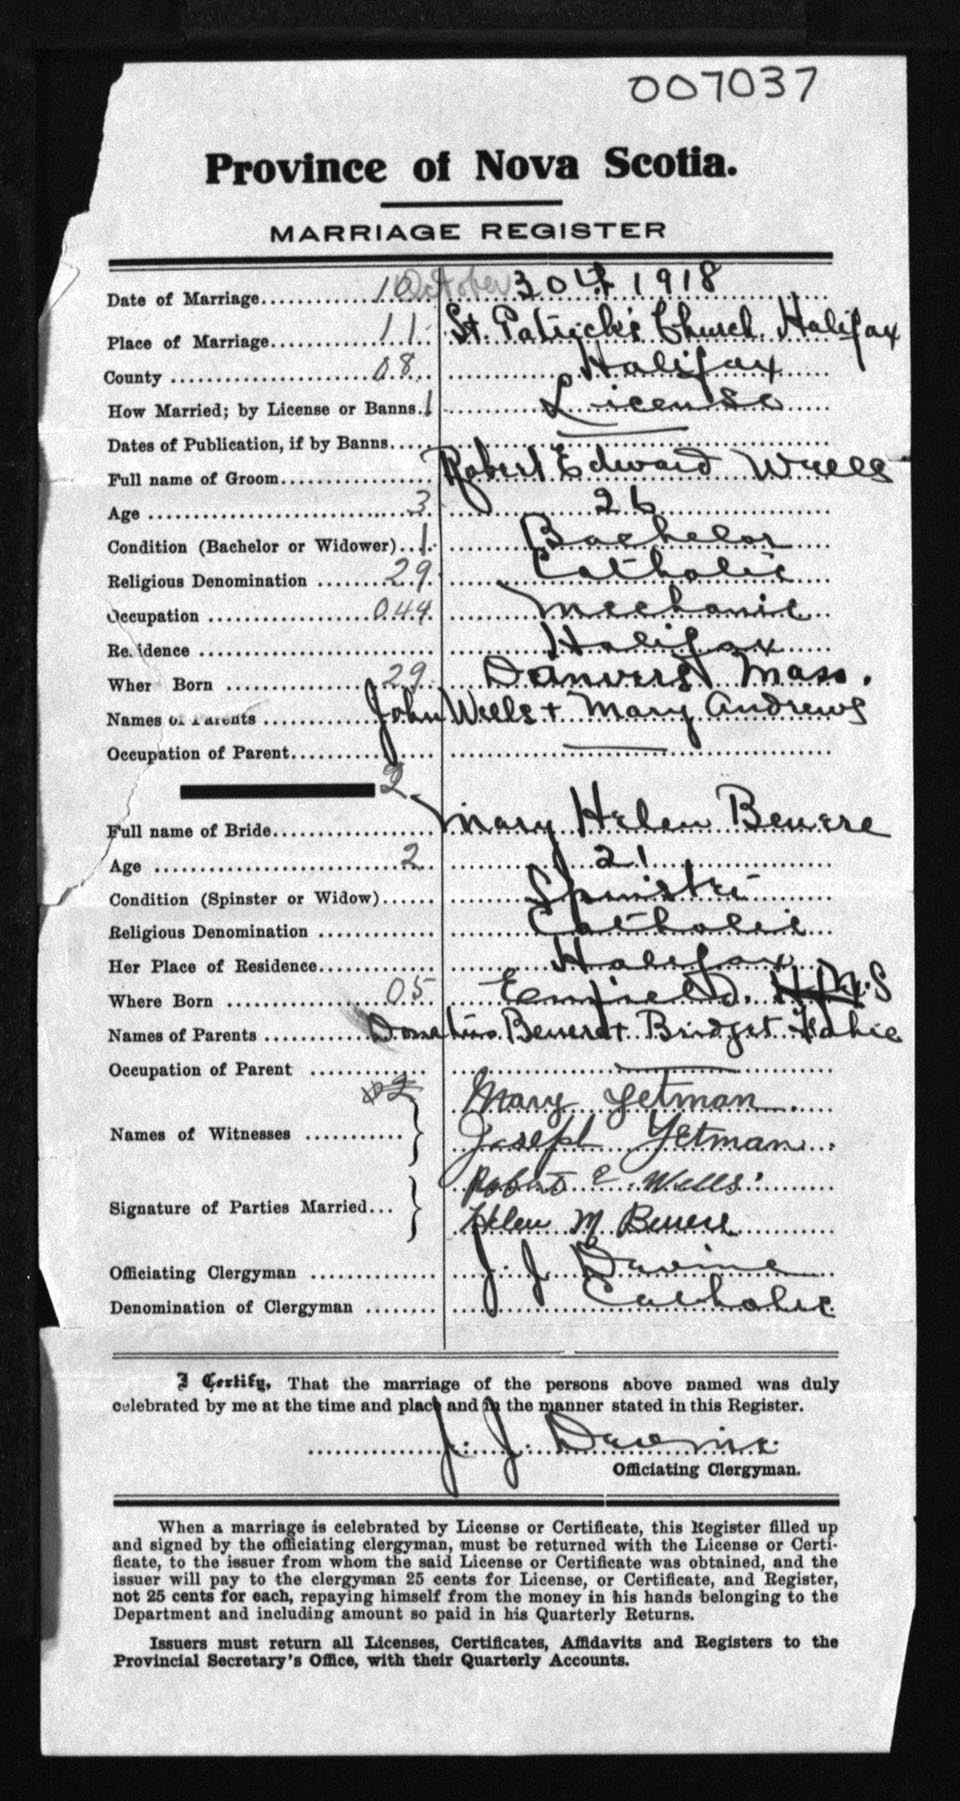 007037
Province of Nova Scotia.
MARRIAGE REGISTER
Date of Marriage 10 October 30th 1918
Place of Marriage 11 St. Patrick's Church Halifax
County 08 Halifax
How Married; by License or Banns. 1 License
Dates of Publication, if by Banns
Full name of Groom Robert Edward Wells
Age 3 26
Condition (Bachelor or Widower) 1 Bachelor
Religious Denomination 29 Catholic
Occupation 044 Mechanic
Residence Halifax
Wher Born 29 Danvers Mass.
Names of Parents John Wells + Mary Andrews
Occupation of Parent
2
Full name of Bride Mary Helen Benere
Age 2 21
Condition (Spinster or Widow) Spinster
Religious Denomination Catholic
Her Place of Residence Halifax
Where Born 05 Enfield. S
Names of Parents Benere + Bridget
Occupation of Parent
Names of Witnesses Mary Yetman
Joseph Yetman
Signature of Parties Married Robert E Wells
Helen M Benere
Officiating Clergyman J. J. Devine
Denomination of Clergyman Catholic
I Certify, That the marriage of the persons above named was duly
celebrated by me at the time and place and in the manner stated in this Register.
J. J. Devine
Officiating Clergyman.
When a marriage is celebrated by License or Certificate, this Register filled up
and signed by the officiating clergyman, must be returned with the License or Certi-
ficate, to the issuer from whom the said License or Certificate was obtained, and the
issuer will pay to the clergyman 25 cents for License, or Certificate, and Register,
not 25 cents for each, repaying himself from the money in his hands belonging to the
Department and including amount so paid in his Quarterly Returns.
Issuers must return all Licenses, Certificates, Affidavits and Registers to the
Provincial Secretary's Office, with their Quarterly Accounts.